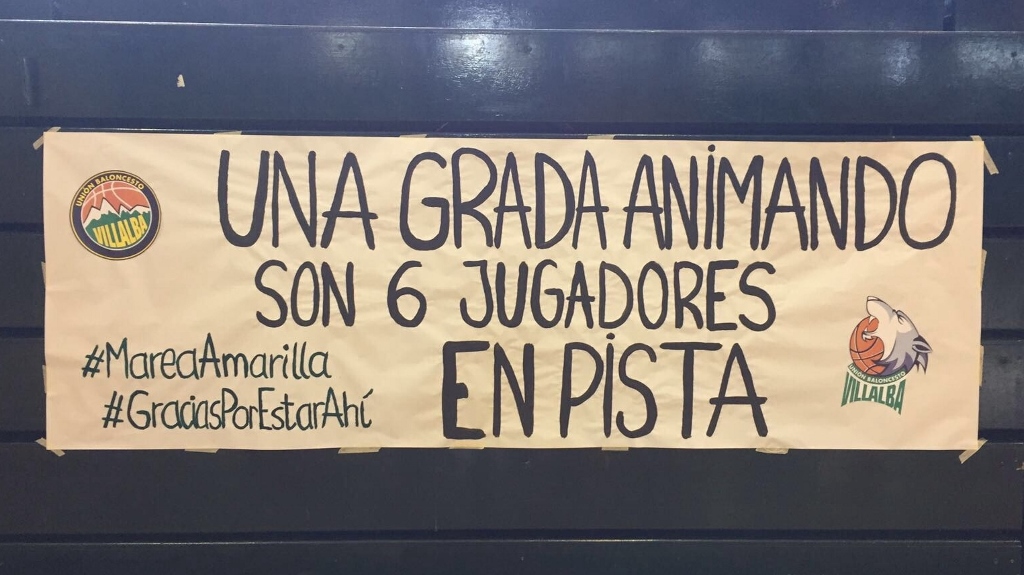 UNIÓN BALONCESTO
VILLALBA
UNA GRADA ANIMANDO
SON 6 JUGADORES
EN PISTA
#MareaAmarilla
#GraciasPorEstarAhí
UNIÓN BALONCESTO
VILLALBA